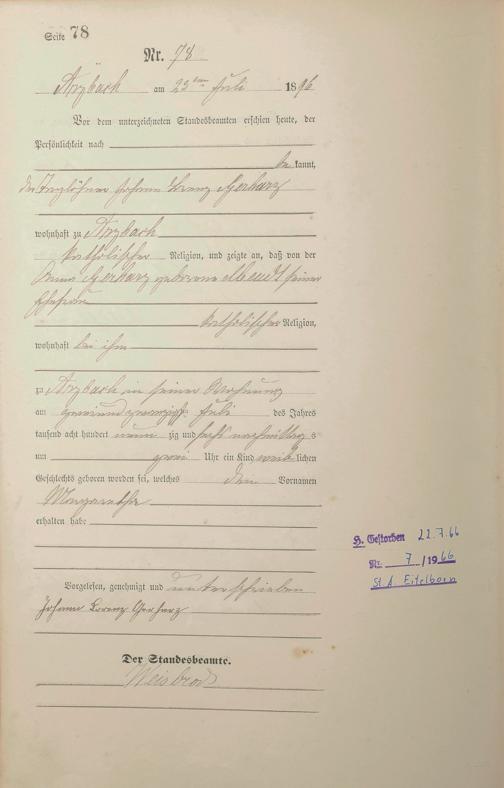 Seite 78
Nr. 78
Arzbach am 23ten Juli 1896
Vor dem unterzeichneten Standesbeamten erschien heute, der
Persönlichkeit nach
be kannt,
der Tagelöhner Johann Lorenz Gerharz
wohnhaft zu Arzbach
katholischer Religion, und zeigte an, daß von der
Anna Gerharz geborene Abendt seiner
Ehefrau
katholischer Religion,
wohnhaft bei ihm
zu Arzbach in seiner Wohnung
am zweiundzwanzigsten Juli des Jahres
tausend acht hundert neun zig und sechs nachmittag s
um zwei Uhr ein Kind weib lichen
Geschlechts geboren worden sei, welches den Vornamen
Margaretha
erhalten habe
Vorgelesen, genehmigt und unterschrieben
Johann Lorenz Gerharz
Der Standesbeamte.
Weisbrod
H. Gestorben 22.7.66
Nr. 7 / 1966
St A Eitelborn